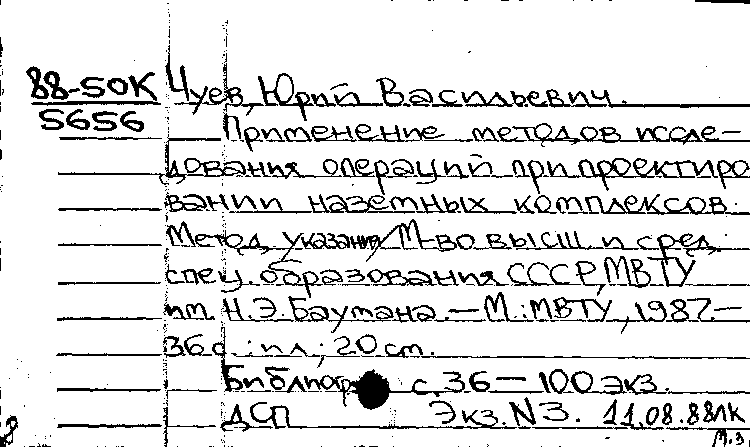 88-50К Чуев, Юрий Васильевич.
5656
Применение методов иссле-
дования операций при проектиро
вании наземных комплексов.
Метод. указания/М-во высш. и сред.
спец. образования СССР, МВТУ
им. Н.Э.Баумана. — М.: МВТУ, 1987. —
36 с.: ил.; 20 см.
Библиогр с. 36 — 100 экз.
ДСП Экз. N3. 11.08.88ЛК